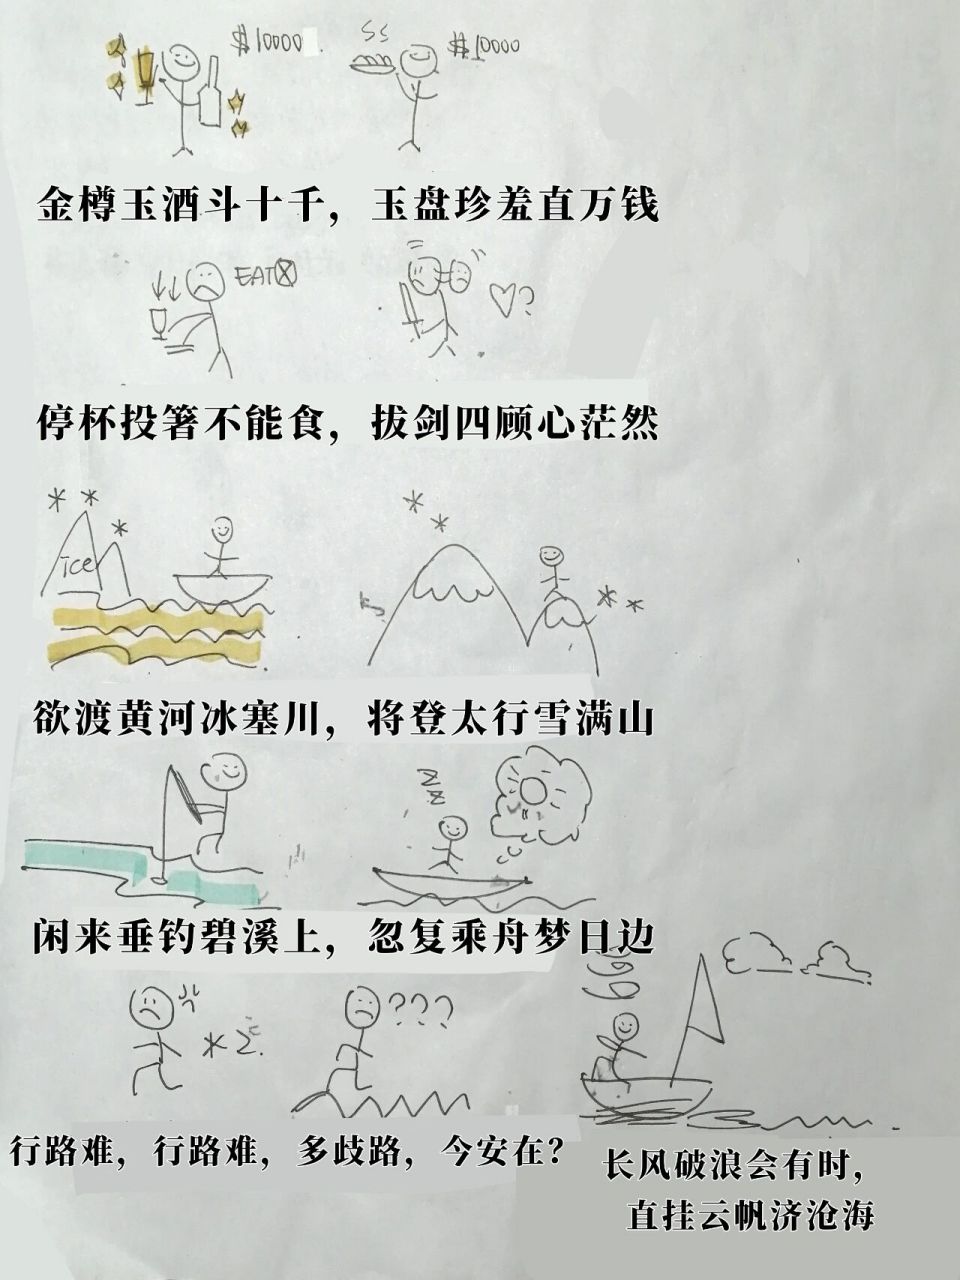 $10000
$10000
金樽玉酒斗十千，玉盘珍羞直万钱
EAT
停杯投箸不能食，拔剑四顾心茫然
ice
欲渡黄河冰塞川，将登太行雪满山
zz
闲来垂钓碧溪上，忽复乘舟梦日边
*2
???
行路难，行路难，多歧路，今安在？
长风破浪会有时，
直挂云帆济沧海